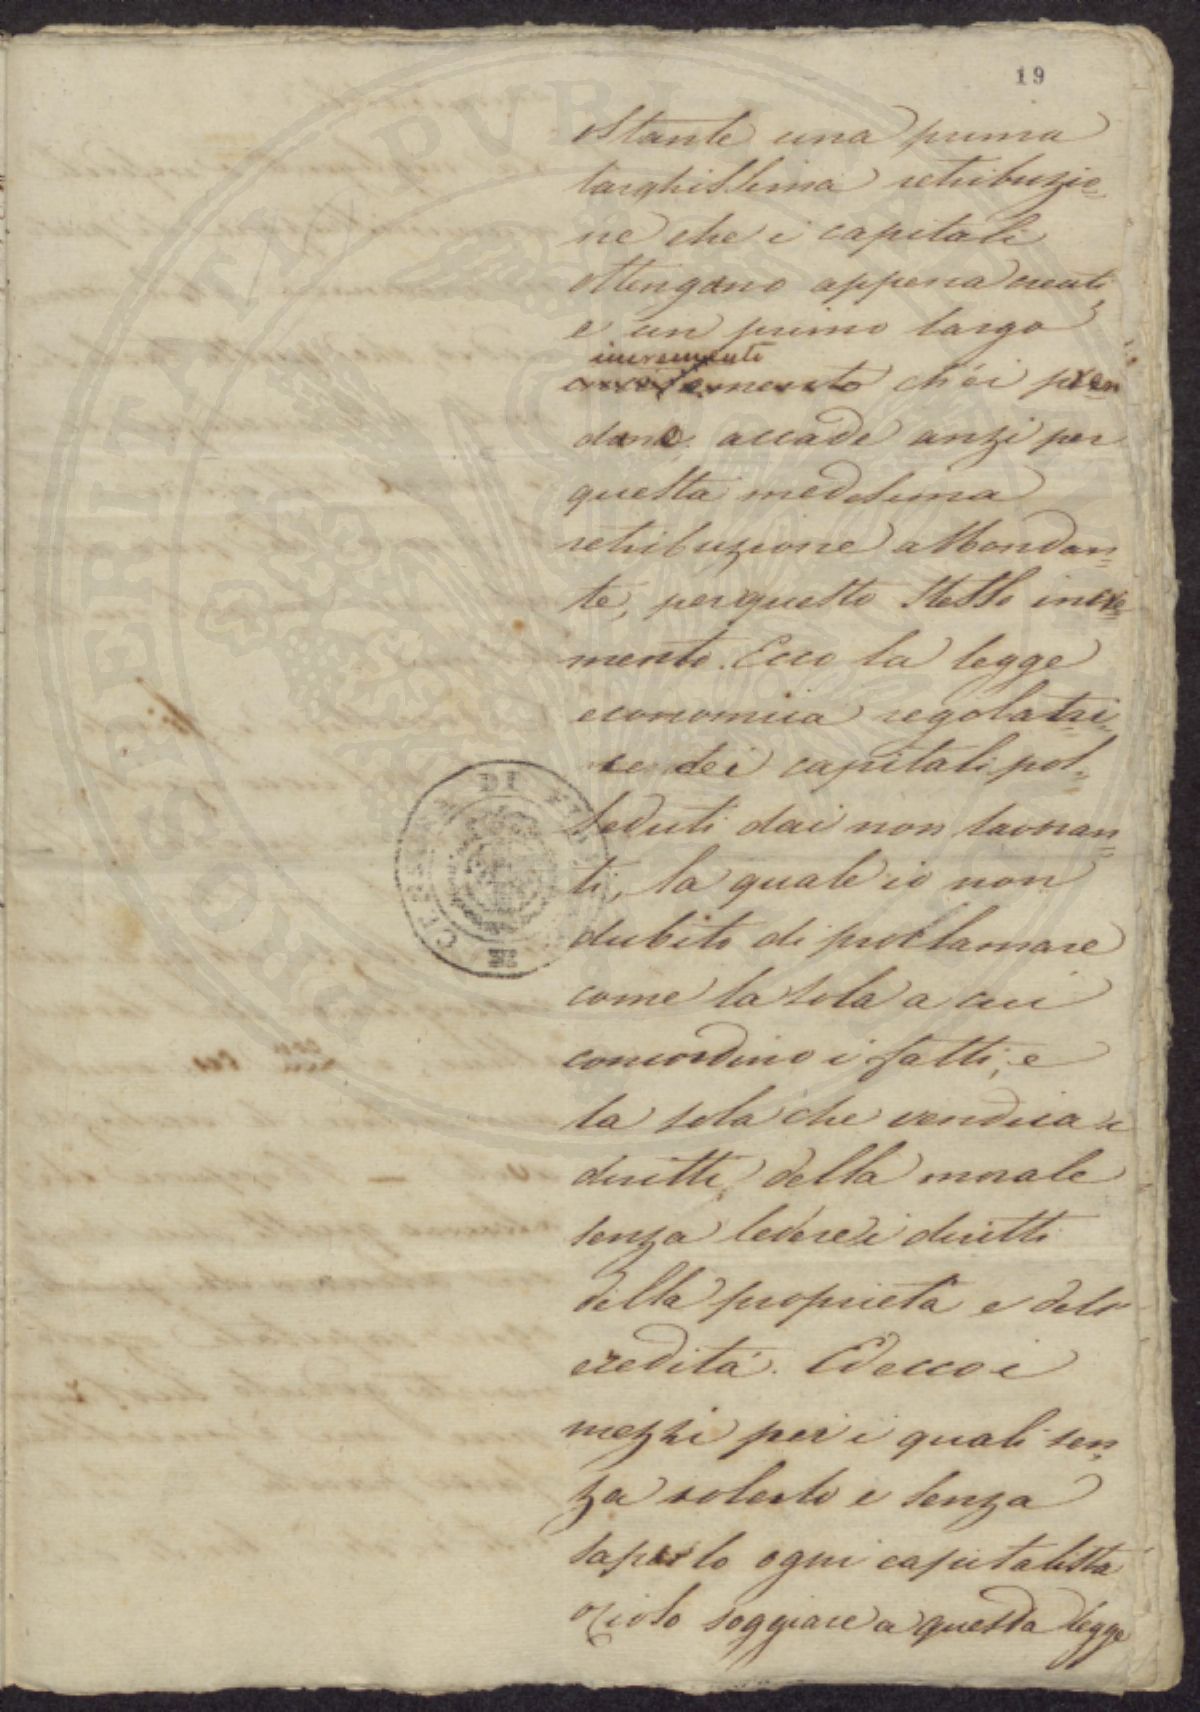 19
ostante una prima
larghissima retribuzio=
ne che i capitali
ottengano appena creati,
e un primo largo
incremento
ch'ei pren=
dano accade anzi per
questa medesima
retribuzione abbondan=
te, per questo stesso incre=
mento. Ecco la legge
economica regolatri=
ce dei capitali pos=
seduti dai non lavoran=
ti, la quale io non
dubito di proclamare
come la sola a cui
concordino i fatti, e
la sola che vendica i
diritti della morale
senza ledere i diritti
della proprietà e dell'
eredità. Ed ecco i
mezzi per i quali sen=
za volerlo e senza
saperlo ogni capitalista
ozioso soggiace a questa legge
PROSPERITATI PVBLICAE
DI